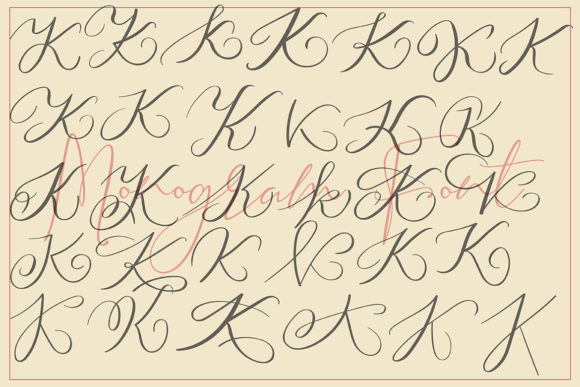 K K K K K K K
K K K K K K
Monogram Font
K K K K K K
K K K K K K
K K K K K K